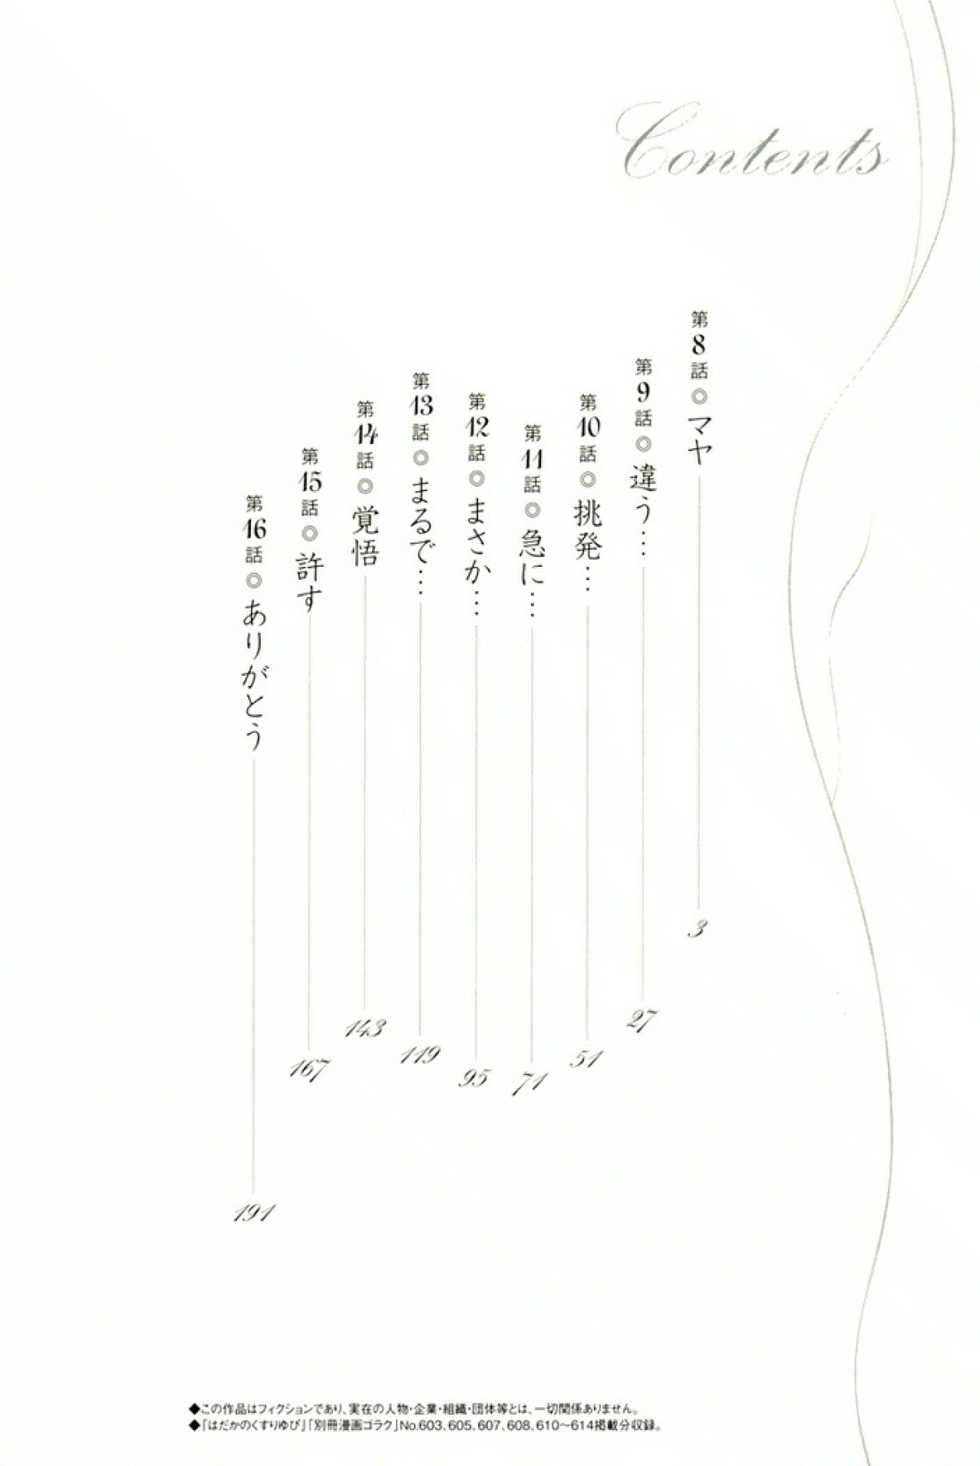 Contents
第8話◎マヤ 3
第9話◎違う… 27
第10話◎挑発… 51
第11話◎急に… 71
第12話◎まさか… 95
第13話◎まるで… 119
第14話◎覚悟 143
第15話◎許す 167
第16話◎ありがとう 191
◆この作品はフィクションであり、実在の人物・企業・組織・団体等とは、一切関係ありません。
◆「はだかのくすりゆび」「別冊漫画ゴラク」No.603、605、607、608、610〜614掲載分収録。